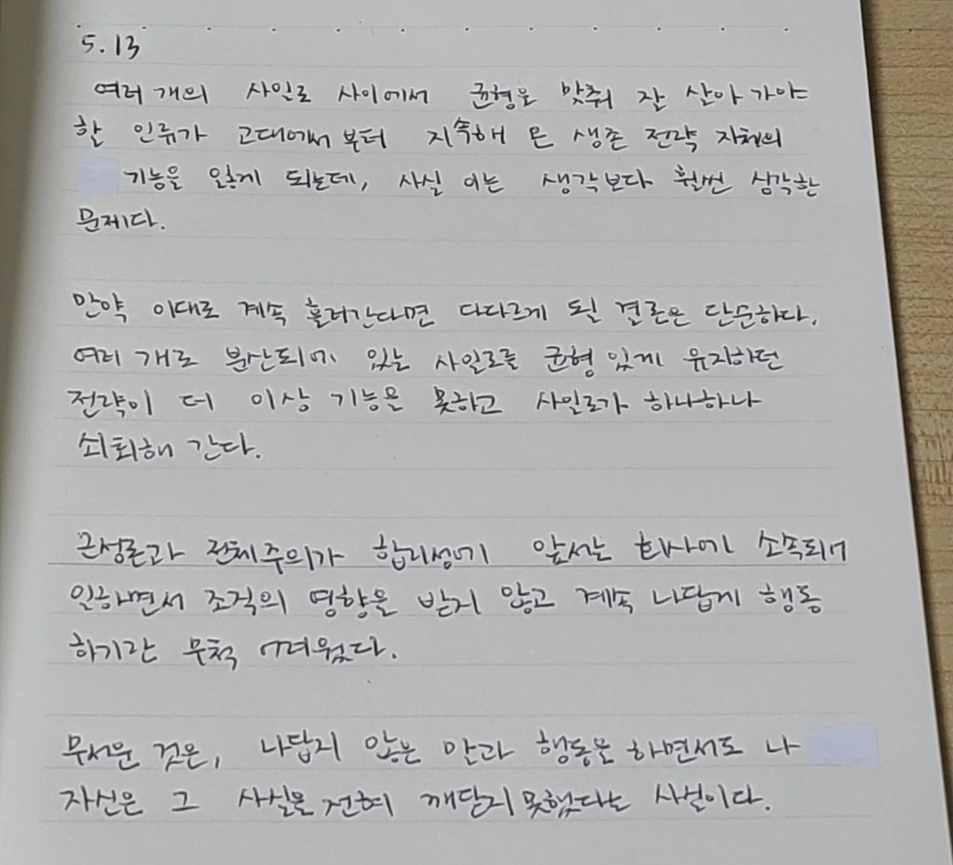 5.13
여러 개의 사일로 사이에서 균형을 맞춰 잘 살아가야
할 인류가 고대에서부터 지속해 온 생존 전략 자체의
기능을 잃게 되는데, 사실 이는 생각보다 훨씬 심각한
문제다.
만약 이대로 계속 흘러간다면 다다르게 될 결론은 단순하다.
여러 개로 분산되어 있는 사일로를 균형 있게 유지하던
전략이 더 이상 기능을 못하고 사일로가 하나하나
쇠퇴해 간다.
근성론과 전체주의가 합리성에 앞서는 회사에 소속되어
일하면서 조직의 영향을 받지 않고 계속 나답게 행동
하기란 무척 어려웠다.
무서운 것은, 나답지 않은 말과 행동을 하면서도 나
자신은 그 사실을 전혀 깨닫지 못했다는 사실이다.